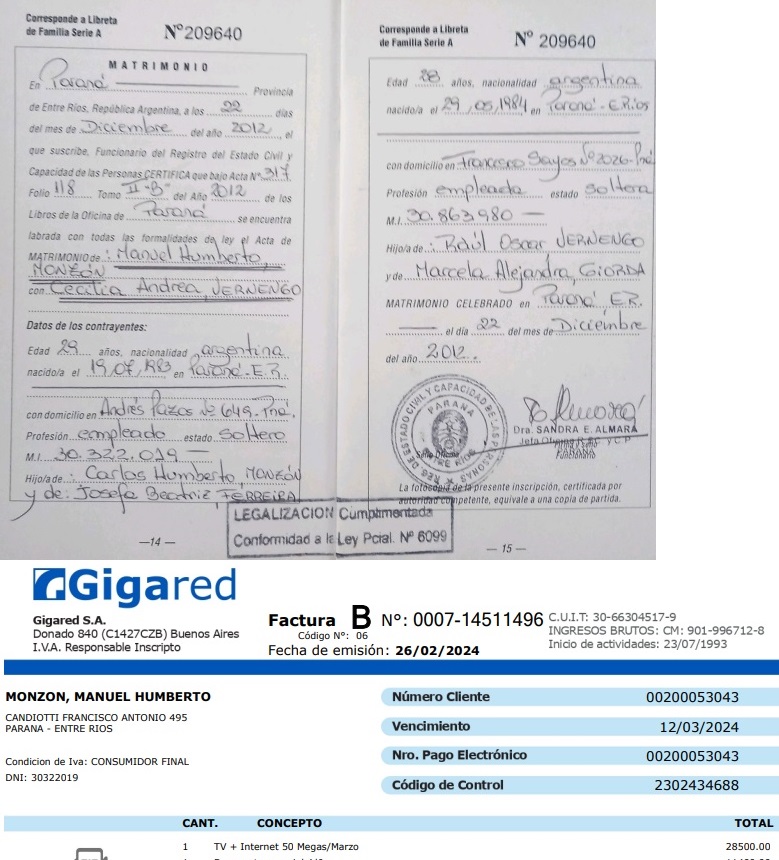 Corresponde a Libreta
de Familia Serie A
Nº209640
MATRIMONIO
En Paraná Provincia
de Entre Ríos, República Argentina, a los 22 días
del mes de Diciembre del año 2012, el
que suscribe, Funcionario del Registro del Estado Civil y
Capacidad de las Personas CERTIFICA que bajo Acta Nº 317
Folio 118 Tomo II-B del Año 2012 de los
Libros de la Oficina de Paraná se encuentra
labrada con todas las formalidades de ley el Acta de
MATRIMONIO de: Manuel Humberto,
MONZÓN
con Cecilia Andrea JERNENGO
Datos de los contrayentes:
Edad 29 años, nacionalidad argentina
nacido/a el 19,07,1983 en Paraná-E.R.
con domicilio en Andrés Pazos Nº 649-Pná.
Profesión empleado estado soltero
M.I. 30.322.019
Hijo/a de: Carlos Humberto, MONZÓN
y de: Josefa Beatriz FERREIRA
—14—
Corresponde a Libreta
de Familia Serie A
Nº 209640
Edad 28 años, nacionalidad argentina
nacido/a el 29,05,1984 en Paraná-E.Ríos
con domicilio en Francisco Nº2026-Pná
Profesión empleada estado soltera
M.I. 30.863.980
Hijo/a de: Raúl Oscar JERNENGO
y de Marcela Alejandra, GIORDA
MATRIMONIO CELEBRADO en Paraná, E.R.
el día 22 del mes de Diciembre
del año 2012.
REG. DE ESTADO CIVIL Y CAPACIDAD DE LAS PERSONAS
PARANA
ENTRE RIOS
Dra. SANDRA E. ALMARA
La fotocopia de la presente inscripción, certificada por
autoridad competente, equivale a una copia de partida.
— 15 —
LEGALIZACION Cumplimentada
Conformidad a la Ley Pcial. Nº 6099
Gigared
Gigared S.A.
Donado 840 (C1427CZB) Buenos Aires
I.V.A. Responsable Inscripto
Factura B Nº: 0007-14511496
Código Nº: 06
Fecha de emisión: 26/02/2024
C.U.I.T: 30-66304517-9
INGRESOS BRUTOS: CM: 901-996712-8
Inicio de actividades: 23/07/1993
MONZON, MANUEL HUMBERTO
CANDIOTTI FRANCISCO ANTONIO 495
PARANA - ENTRE RIOS
Condicion de Iva: CONSUMIDOR FINAL
DNI: 30322019
Número Cliente 00200053043
Vencimiento 12/03/2024
Nro. Pago Electrónico 00200053043
Código de Control 2302434688
CANT. CONCEPTO TOTAL
1 TV + Internet 50 Megas/Marzo 28500.00